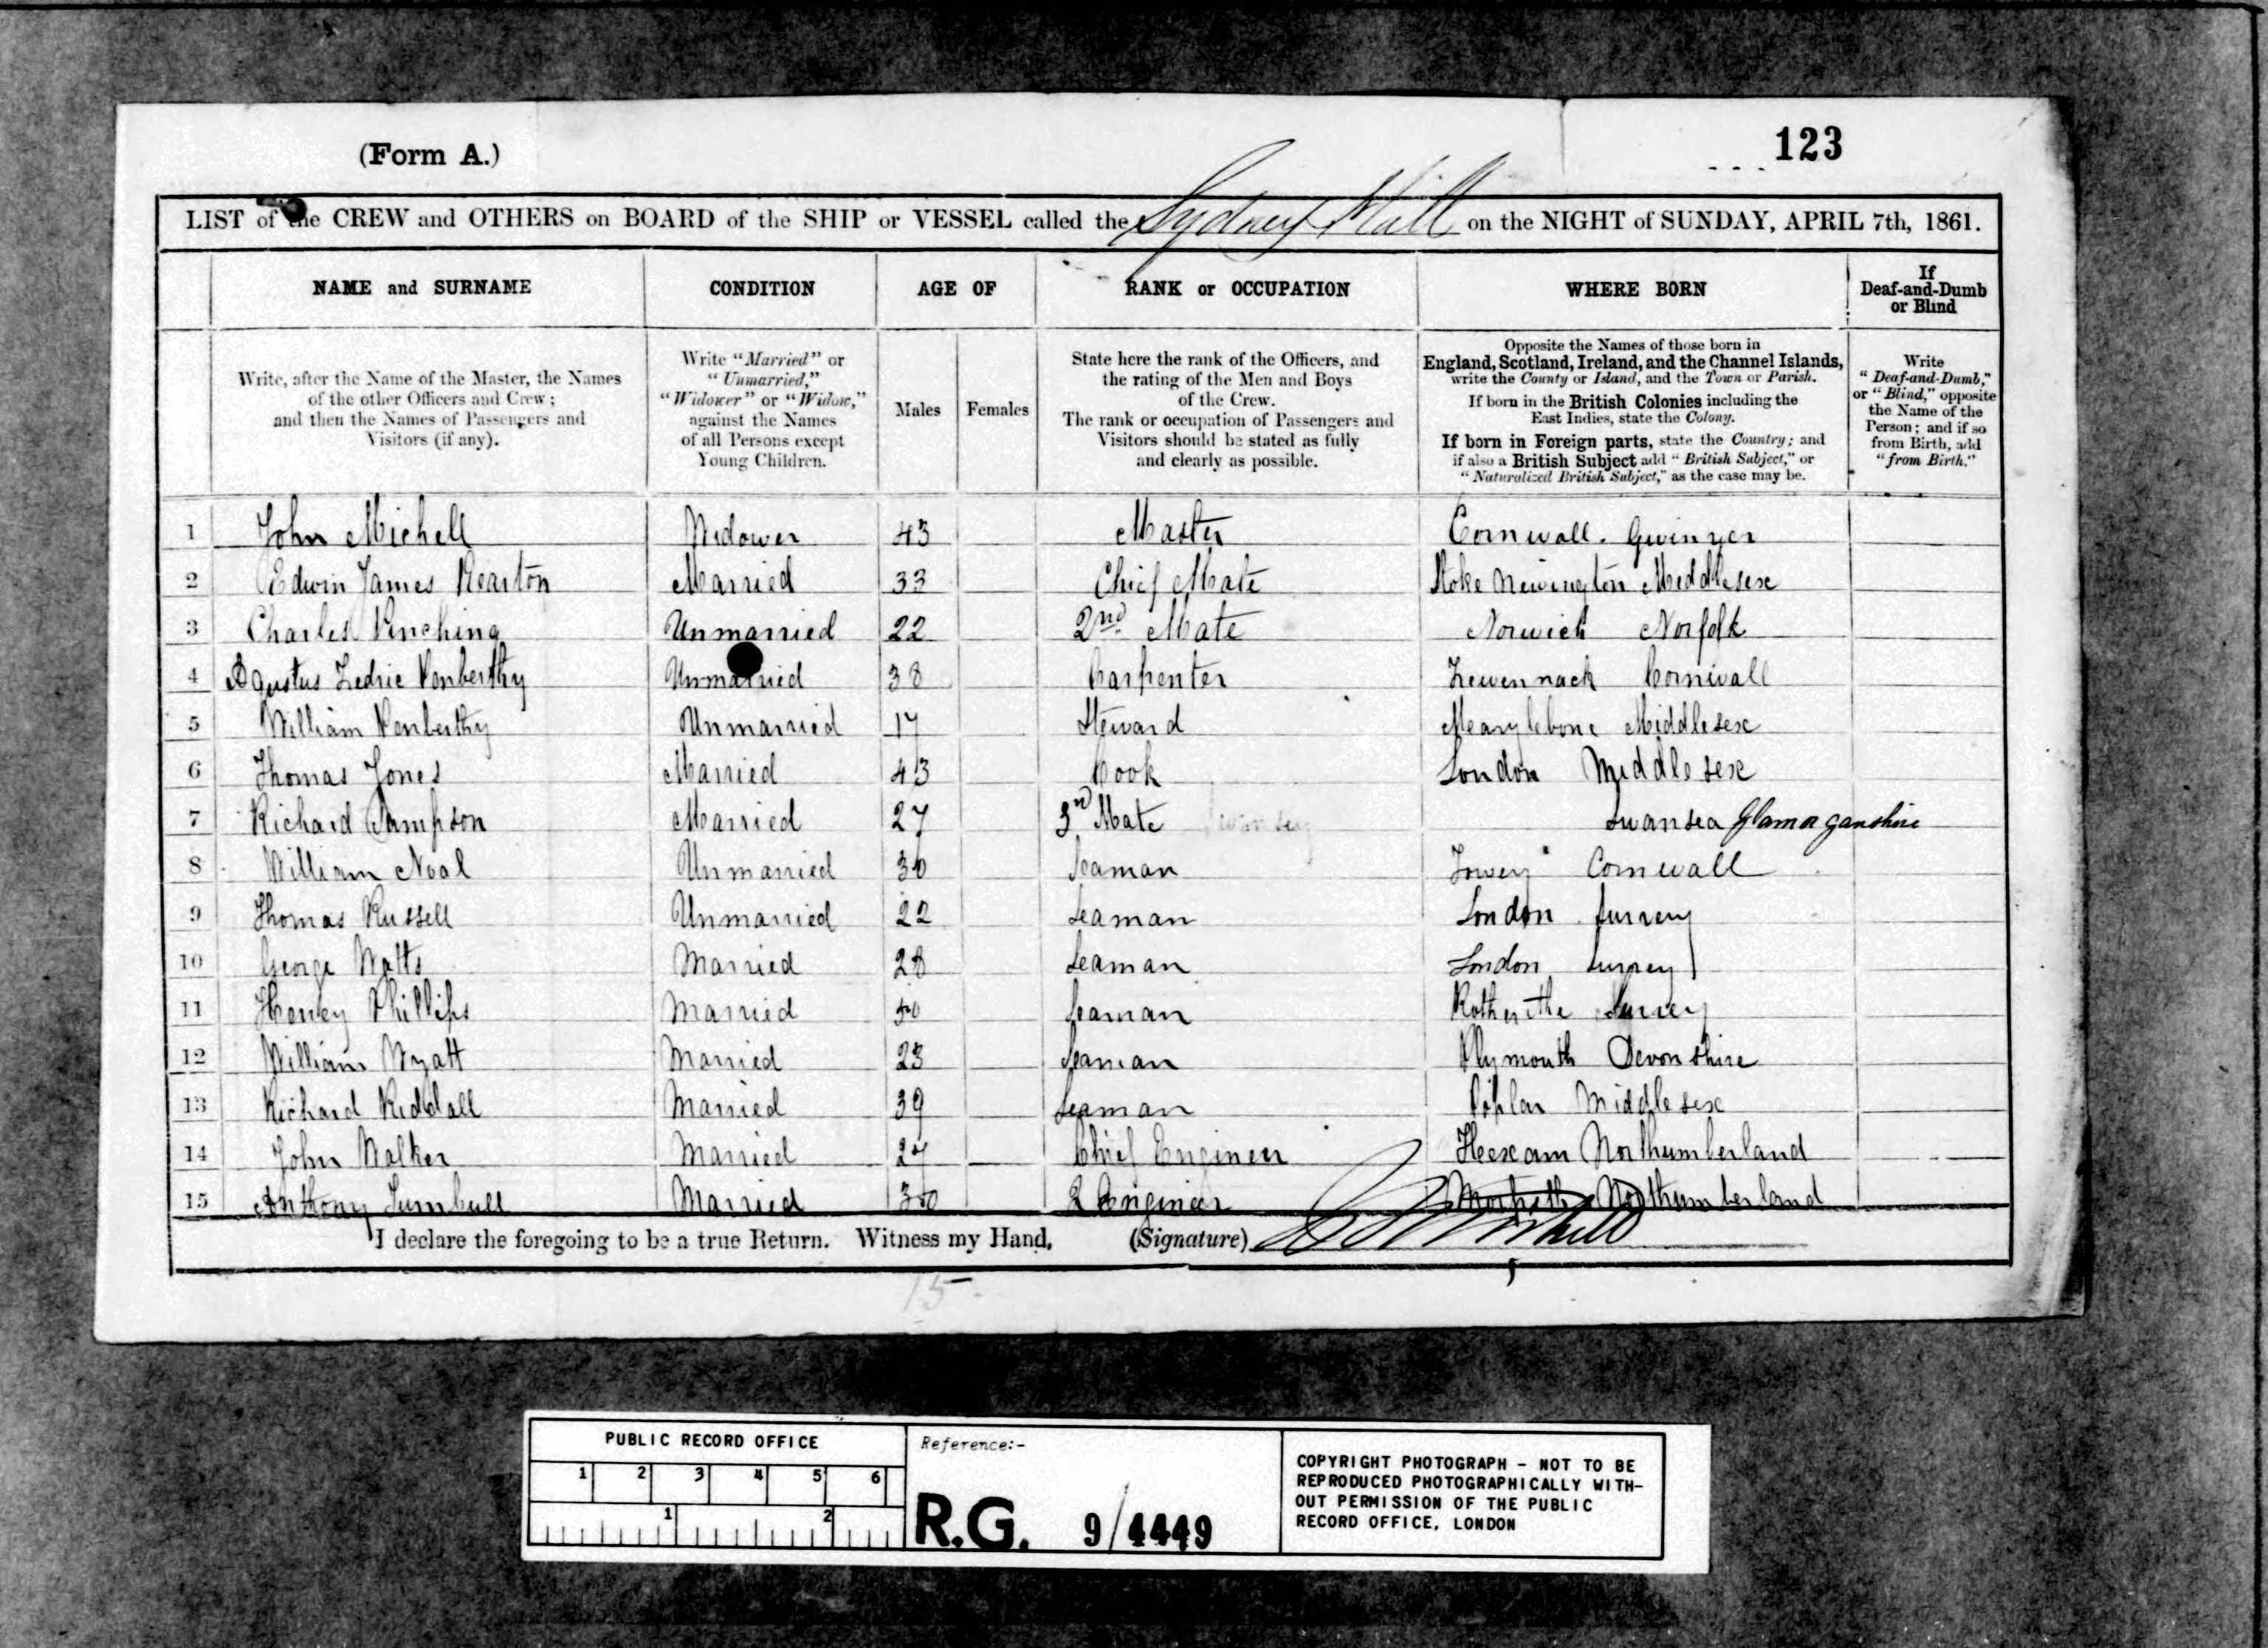 (Form A.)
123
LIST of the CREW and OTHERS on BOARD of the SHIP or VESSEL called the Sydney Hall on the NIGHT of SUNDAY, APRIL 7th, 1861.
NAME and SURNAME CONDITION AGE OF RANK or OCCUPATION WHERE BORN If Deaf-and-Dumb or Blind
Write, after the Name of the Master, the Names
of the other Officers and Crew;
and then the Names of Passengers and
Visitors (if any).
Write "Married" or
"Unmarried,"
"Widower" or "Widow,"
against the Names
of all Persons except
Young Children.
Males Females
State here the rank of the Officers, and
the rating of the Men and Boys
of the Crew.
The rank or occupation of Passengers and
Visitors should be stated as fully
and clearly as possible.
Opposite the Names of those born in
England, Scotland, Ireland, and the Channel Islands,
write the County or Island, and the Town or Parish.
If born in the British Colonies including the
East Indies, state the Colony.
If born in Foreign parts, state the Country; and
if also a British Subject add "British Subject," or
"Naturalized British Subject," as the case may be.
Write
"Deaf-and-Dumb,"
or "Blind," opposite
the Name of the
Person; and if so
from Birth, add
"from Birth."
1 John Michell Widower 43 Master Cornwall. Gwinyer
2 Edwin James Kearton Married 33 Chief Mate Stoke Newington Middlesex
3 Charles Pinching Unmarried 22 2nd Mate Norwich Norfolk
4 Agustus Penberthy Unmarried 38 Carpenter Cornwall
5 William Penberthy Unmarried 17 Steward Mearylebone Middlesex
6 Thomas Jones Married 43 Cook London Middlesex
7 Richard Sampson Married 27 3rd Mate Swansea Glamorganshire
8 William Noal Unmarried 30 Seaman Fowey Cornwall
9 Thomas Russell Unmarried 22 Seaman London Surrey
10 George Watts Married 28 Seaman London Surrey
11 Henrey Phillips Married Seaman Surrey
12 William Wyatt Married 23 Seaman Plymouth Devonshire
13 Richard Riddall Married 39 Seaman Poplar Middlesex
14 John Walker Married 27 Chief Engineer Heexam Northumberland
15 Anthony Turnbull Married 30 2 Engineer Morpeth Northumberland
I declare the foregoing to be a true Return. Witness my Hand, (Signature)
15
PUBLIC RECORD OFFICE
1 2 3 4 5 6
1 2
Reference:-
R.G. 9/4449
COPYRIGHT PHOTOGRAPH - NOT TO BE
REPRODUCED PHOTOGRAPHICALLY WITH-
OUT PERMISSION OF THE PUBLIC
RECORD OFFICE, LONDON